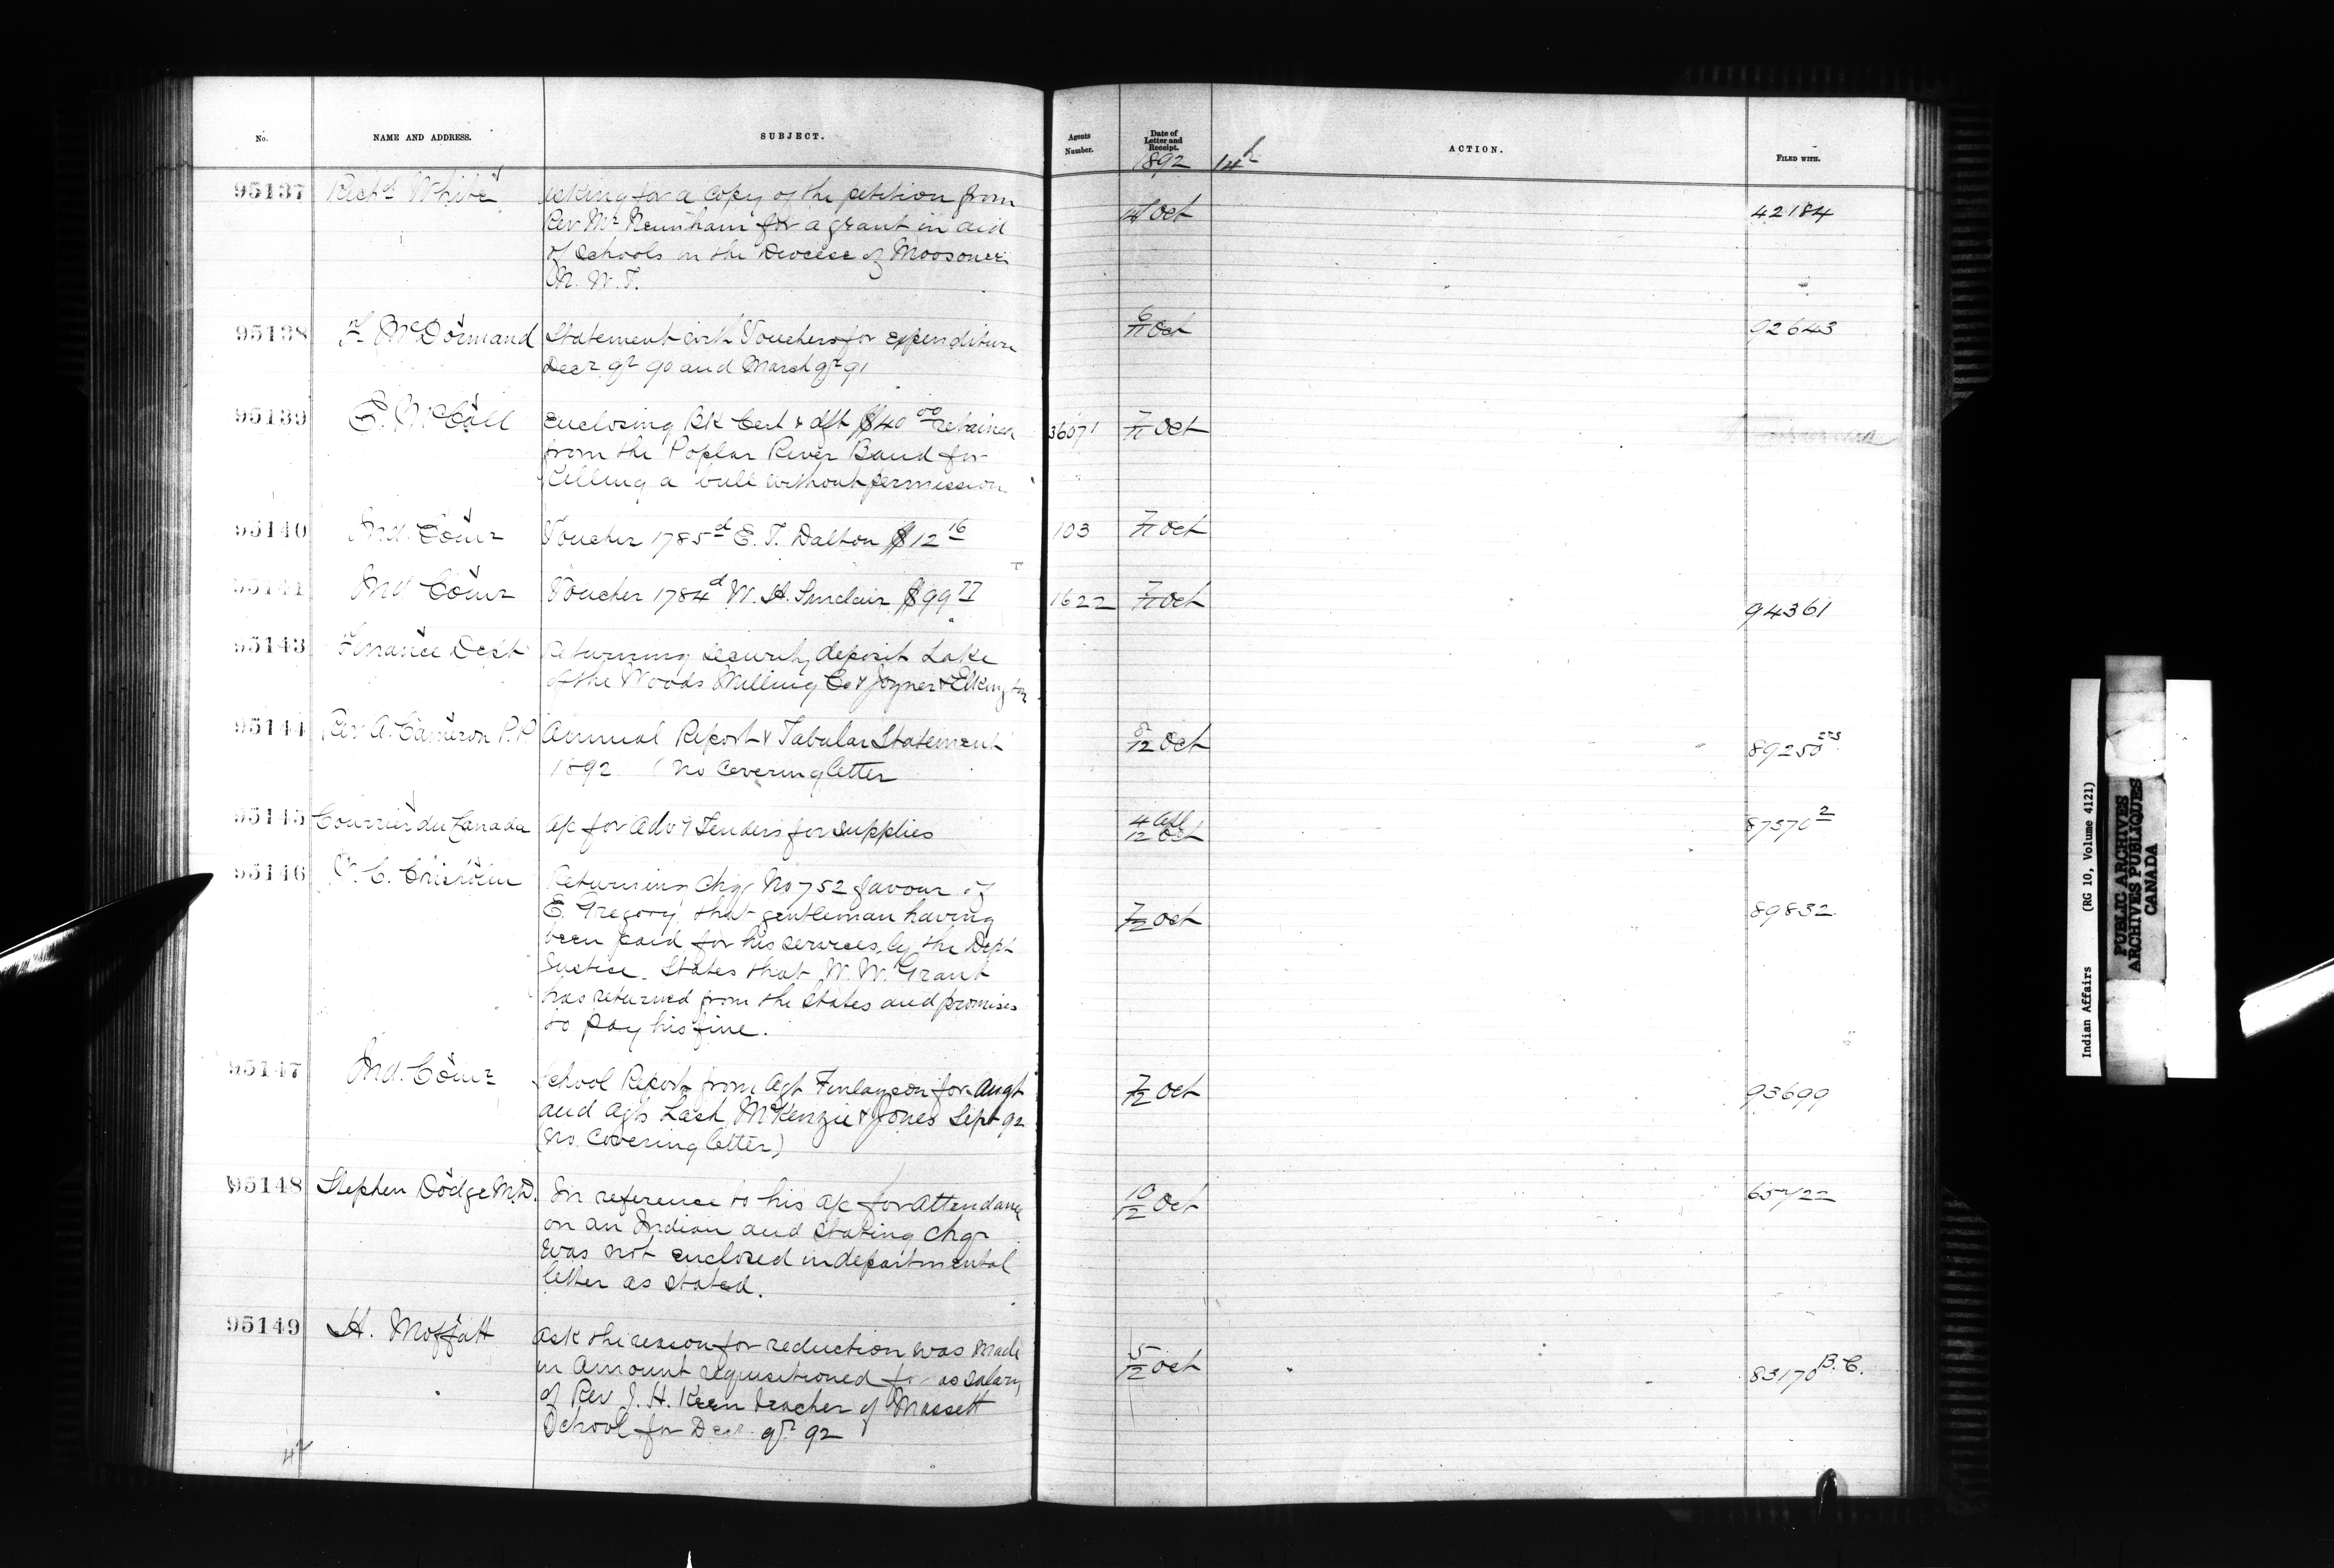 No. NAME AND ADDRESS. SUBJECT. Agents Number. Date of Letter and Receipt. ACTION. FILED WITH.
1892 14th
95137 Richd White Asking for a copy of the petition from
Rev Mr Newnham for a grant in aid 14 Oct 42184
of Schools in the Diocese of Moosonee
N. W. T.
95138 F McDormand Statement with Vouchers for expenditure 6/11 Oct 92643
Decr qr 90 and March qr 91
95139 E. McColl Enclosing Bk Cert & dft $40 00 retained 36071 7/11 Oct
from the Poplar River Band for
killing a bull without permission
95140 Ind. Comr Voucher 1785d E. T. Dalton $12 16 103 7/11 Oct
95141 Ind Comr Voucher 1784d W. H. Sinclair $99 77 1622 7/11 Oct 94361
95143 Finance Dept Returning security deposit Lake
of the Woods Milling Co & Joyner & Elkington
95144 Rev A. Cameron P.P. Annual Report & Tabular Statement 8/12 Oct 89250 273
1892 (no covering letter
95145 Courrier du Canada a/c for advg Tenders for supplies 4 /12 Oct 87370 2
95146 Returning Chq No 752 favour of
E. Gregory, that gentleman having 7/12 Oct 89832
been paid for his services, by the Dept
Justice. States that W. W. Grant
has returned from the States and promises
to pay his fine.
95147 Ind. Comr School Report from Agt Finlayson for Augt 7/12 Oct 93699
and Agts Lash, McKenzie & Jones Sept 92
(No. covering letter)
95148 Stephen Dodge M.D. In reference to his a/c for attendance 10/12 Oct 65722
on an Indian and stating chqe
was not enclosed in departmental
letter as stated.
95149 H. Moffatt Ask the reason for reduction was made
in amount requisitioned for as salary 5/12 Oct 83170 B.C.
of Rev J. H. Keen teacher of Massett
School for Decr qr 92
Indian Affairs (RG 10, Volume 4121)
PUBLIC ARCHIVES
ARCHIVES PUBLIQUES
CANADA